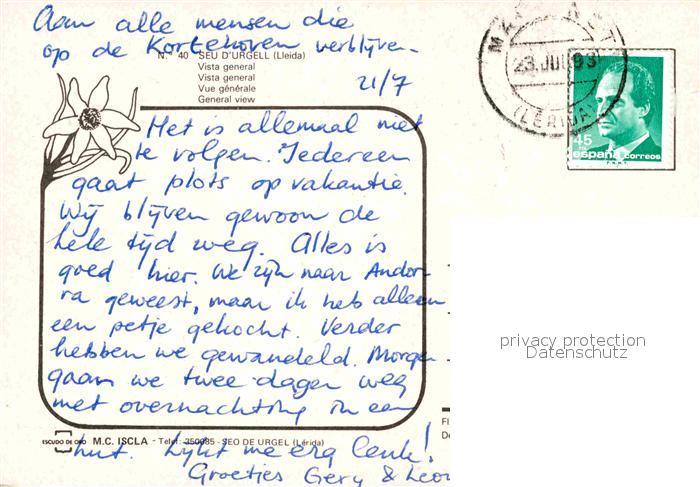 Aan alle mensen die
op de Kortehoven verblijven.
N.° 40 SEU D'URGELL (Lleida)
Vista general
Vista general
Vue générale
General view
21/7
Het is allemaal niet
te volgen. Iedereen
gaat plots op vakantie.
Wij blijven gewoon de
hele tijd weg. Alles is
goed hier. We zijn naar Andor-
ra geweest, maar ik heb alleen
een petje gekocht. Verder
hebben we gewandeld. Morgen
gaan we twee dagen weg
met overnachting in een
ESCUDO DE ORO M.C. ISCLA - Telef. 350085 - SEO DE URGEL (Lérida)
hut. Lijkt me erg leuk!
Groetjes Gery & Leo
23 JUL 93
(LERIDA)
45
españa correos
privacy protection
Datenschutz